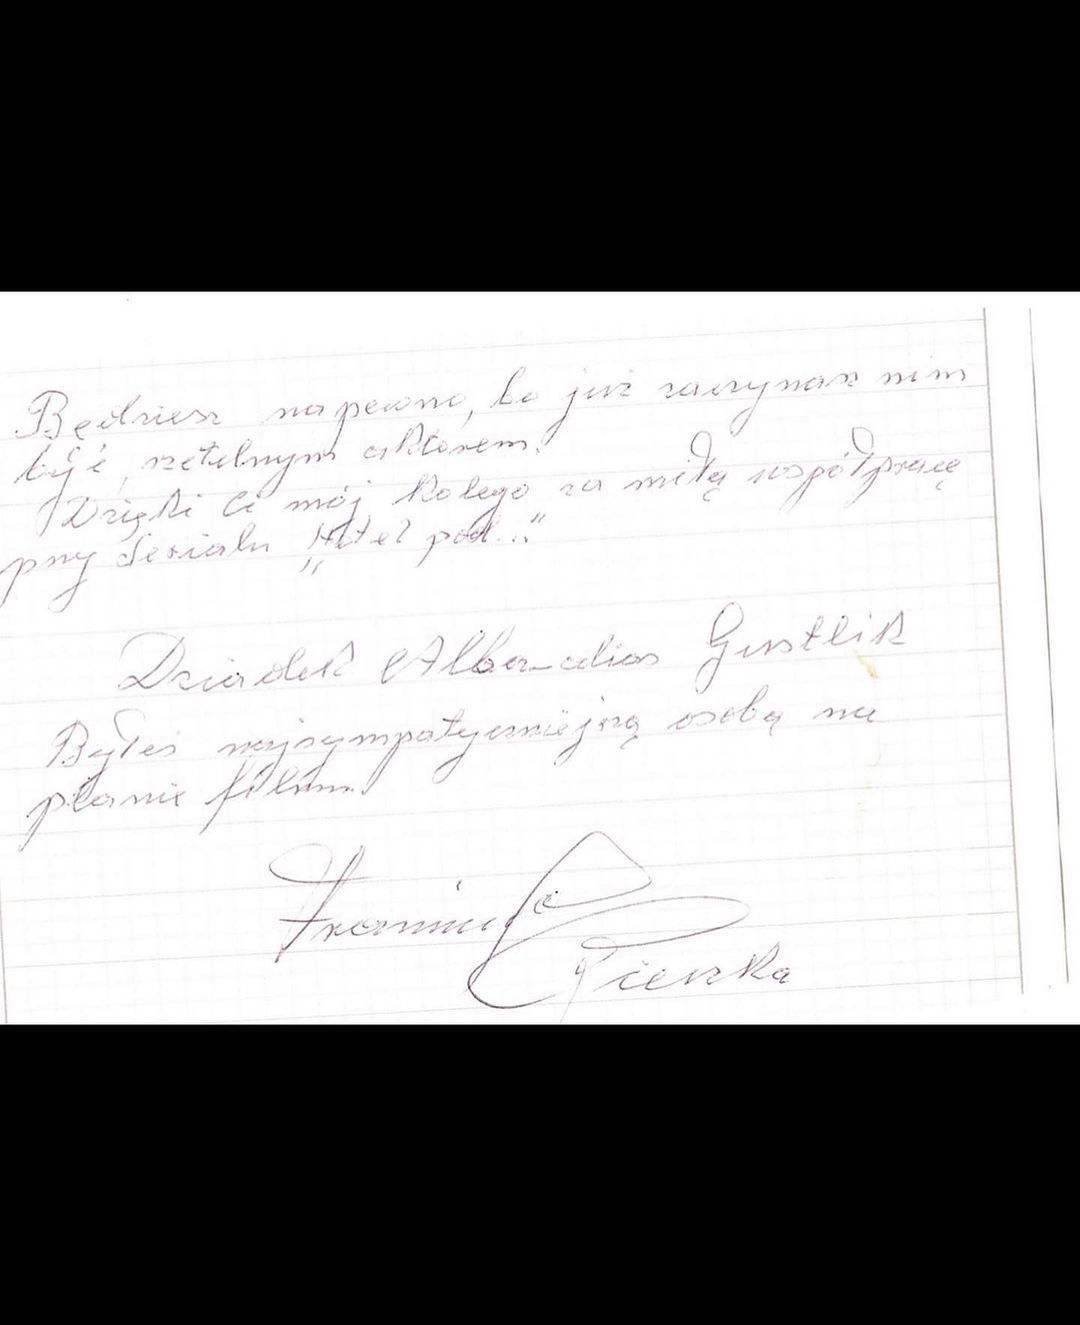 Będziesz napewno, bo już zaczynasz nim
być, rzetelnym aktorem.
Dzięki Ci mój Kolego za miłą współpracę
przy Serialu „Hotel pod..."
Dziadek Alba-alias Gustlik
Byłeś najsympatyczniejszą osobą na
planie filmu.
Franciszek
Pieczka